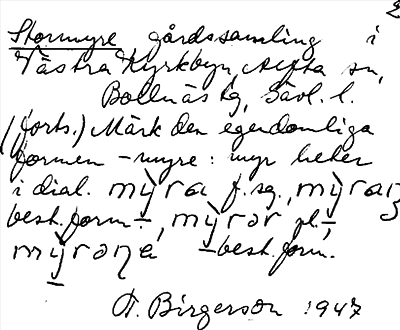 2
Stormyre gårdssamling i
Västra Kyrkbyn, Alfta sn,
Bollnäs tg, Gävl. l.
(forts.) Märk den egendomliga
formen -myre: myr heter
i dial. mỳra f. sg., mỳran
best. form -, mỳrər pl.,
mỳrəɳa -best. form.
A. Birgerson 1947